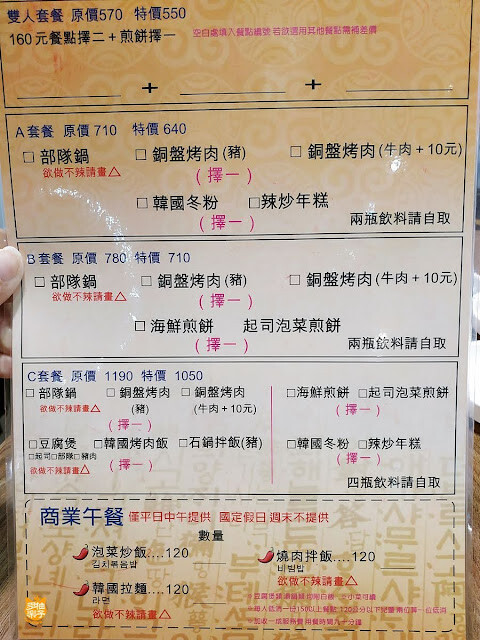 雙人套餐 原價570 特價550
160元餐點擇二+煎餅擇一
空白處填入餐點編號 若欲選用其他餐點需補差價
+ +
A套餐 原價 710 特價 640
□ 部隊鍋 □ 銅盤烤肉(豬) □ 銅盤烤肉(牛肉+10元)
欲做不辣請畫△
(擇一)
□ 韓國冬粉 □辣炒年糕
(擇一)
兩瓶飲料請自取
B套餐 原價 780 特價 710
□ 部隊鍋 □ 銅盤烤肉(豬) □ 銅盤烤肉(牛肉+10元)
欲做不辣請畫△
(擇一)
□ 海鮮煎餅 起司泡菜煎餅
(擇一)
兩瓶飲料請自取
C套餐 原價 1190 特價 1050
□ 部隊鍋 □ 銅盤烤肉(豬) □ 銅盤烤肉(牛肉+10元)
欲做不辣請畫△
(擇一)
□海鮮煎餅 □起司泡菜煎餅
(擇一)
□豆腐煲 □韓國烤肉飯 □石鍋拌飯(豬)
□起司□部隊□豬肉
欲做不辣請畫△
(擇一)
□韓國冬粉 □辣炒年糕
(擇一)
四瓶飲料請自取
商業午餐 僅平日中午提供 國定假日 週末不提供
數量
泡菜炒飯....120
김치볶음밥
燒肉拌飯...120
비빔밥
欲做不辣請畫△
韓國拉麵...120
라면
欲做不辣請畫△
※加收一成服務費 用餐時間九十分鐘